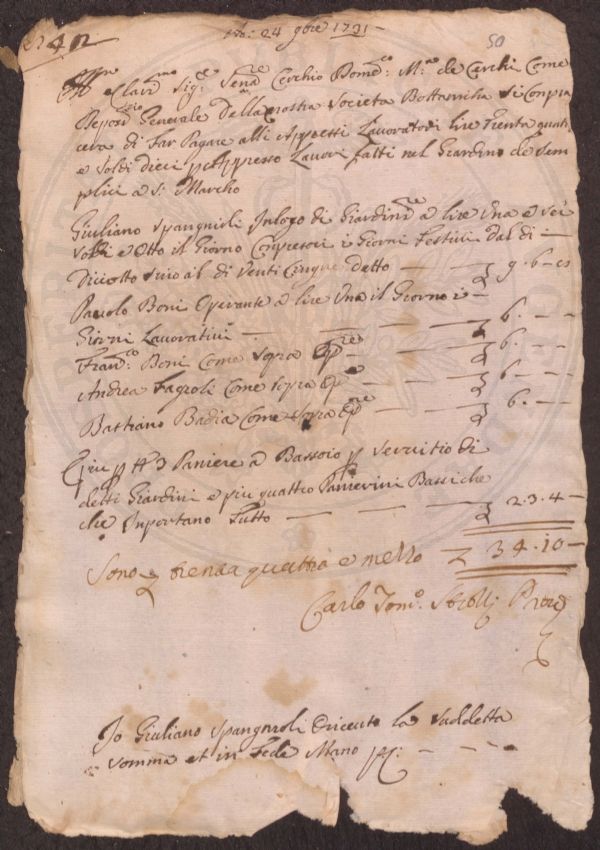 Ad: 24 9bre 1731
50
Clar.mo Sig.re Sena.re Cerchio Bomd.co M.a de Cerchi Come
Generale Della nostra Societa Bottanicha Si Conpia
cera di far Pagare alli Appetti Lavoratori lire trenta quatt
e Soldi dieci p Appresso Lavori fatti nel Giardino de Sem
plici a S: Marcho
Giuliano Spangnioli In logo di Giardin.re a lire Una e Sei
Soldi e Otto il Giorno Conpresovi i Giorni festivi Dal di
Diciotto Sino al di Venti Cinque detto — 9.6-
Pavolo Boni Operante a lire Una il Giorno i
Giorni Lavorativi — 6. —
Fran.co Boni Come Sopra — 6. —
Andrea Fagioli Come Sopra — 6. —
Bastiano Badia Come Sopra — 6. —
E piu p 3 Paniere a Bassoio p Servitio di
detti Giardini e piu quattro Panierini Bassi che
che Inportano Tutto — 2.3.4 —
Sono trenta quattro e mezzo — 34.10 —
Carlo Tom.o Strozzi
Io Giuliano Spangnioli O riceuto la Suddetta
Somma et in Fede Mano pp: